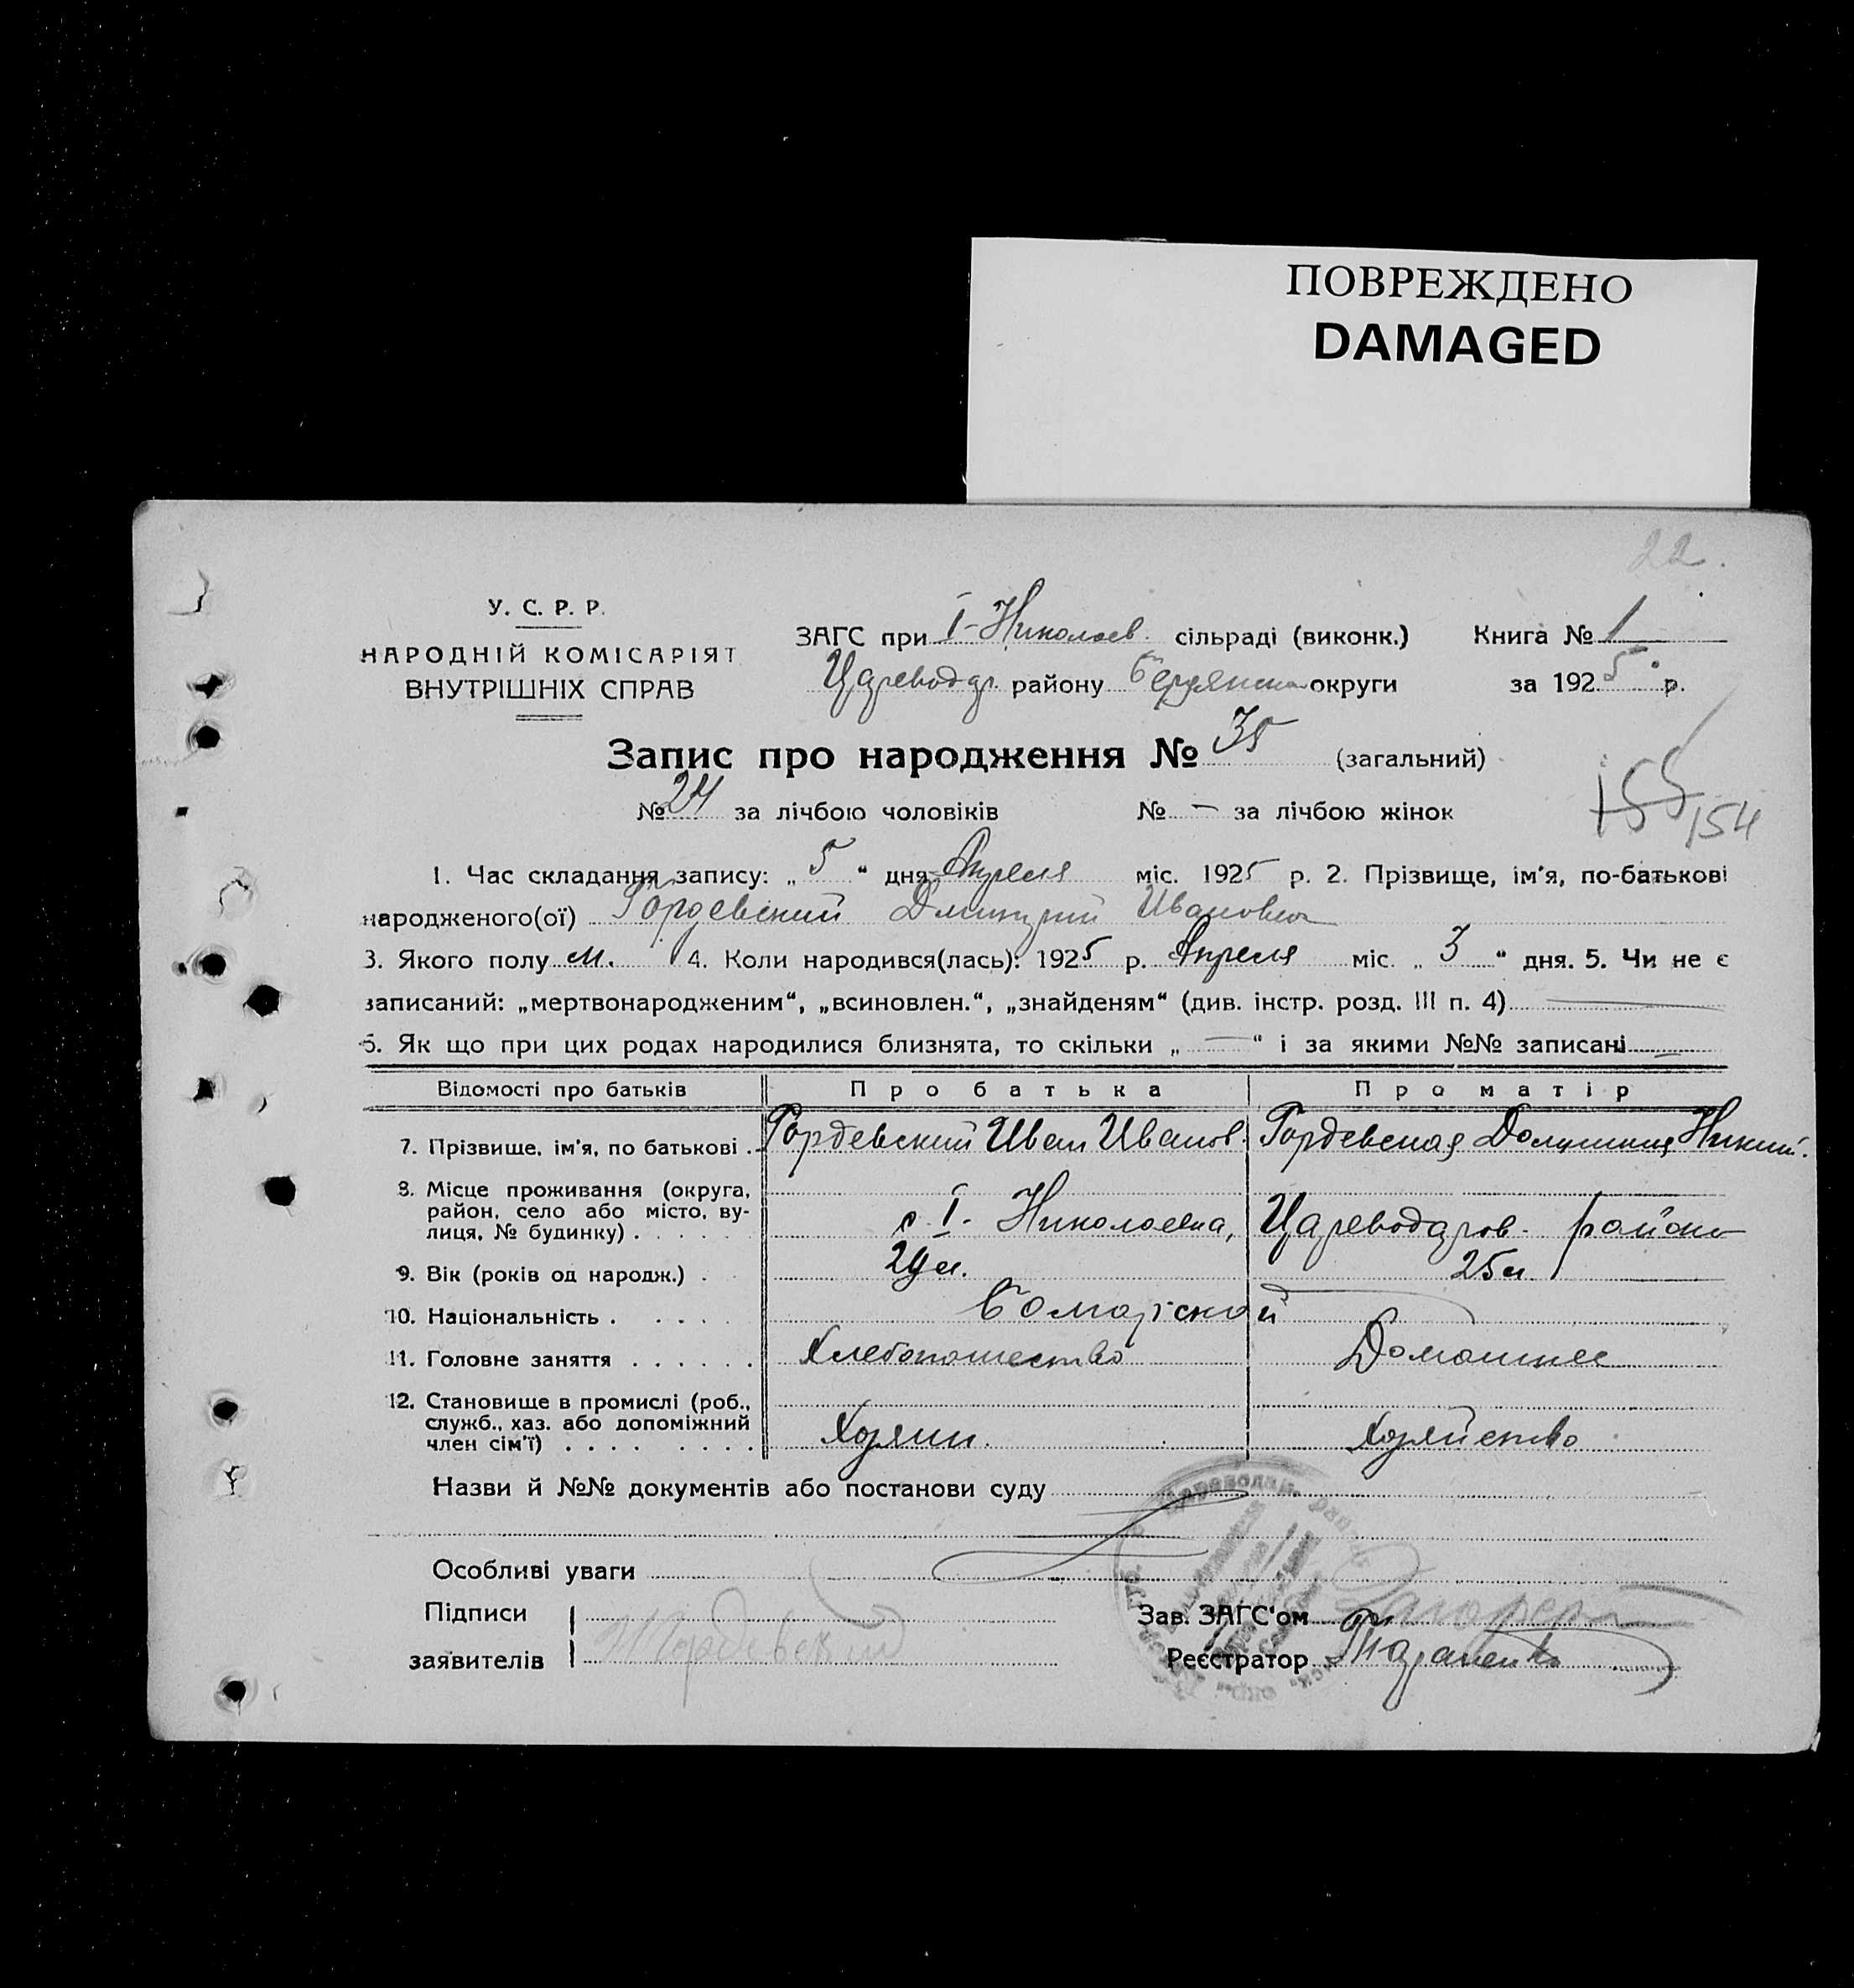 ПОВРЕЖДЕНО
DAMAGED
22.
У. С. Р. Р.
НАРОДНІЙ КОМІСАРІЯТ
ВНУТРІШНІХ СПРАВ
ЗАГС при І-Николаев. сільраді (виконк.) Книга № 1
Цареводар. району Бердянской округи за 1925 р.
Запис про народження № 35 (загальний)
№ 24 за лічбою чоловіків № — за лічбою жінок
155
154
1. Час складання запису: „ 5 “ дня Апреля міс. 1925 р. 2. Прізвище, ім'я, по-батькові
народженого(ої) Гордевский Дмитрий Иванович
3. Якого полу м. 4. Коли народився(лась): 1925 р. Апреля міс. „ 3 “ дня. 5. Чи не є
записаний: „мертвонародженим“, „всиновлен.“, „знайденям“ (див. інстр. розд. III п. 4) —
6. Як що при цих родах народилися близнята, то скільки „ — “ і за якими №№ записані —
Відомості про батьків Про батька Про матір
7. Прізвище, ім'я, по батькові . Гордевский Иван Иванов. Гордевская
8. Місце проживання (округа, район, село або місто, вулиця, № будинку) . . . . . с. І- Николаевка, Цареводаров. района
9. Вік (років од народж.) . 29 л. 25 л.
10. Національність . . . . .
11. Головне заняття . . . . . . Хлебопашество Домашнее
12. Становище в промислі (роб., служб., хаз. або допоміжний член сім'ї) . . . . . . . . Хозяин. Хозяйство
Назви й №№ документів або постанови суду
Особливі уваги
Підписи
заявителів
Гордевский
Зав. ЗАГС'ом
Реєстратор